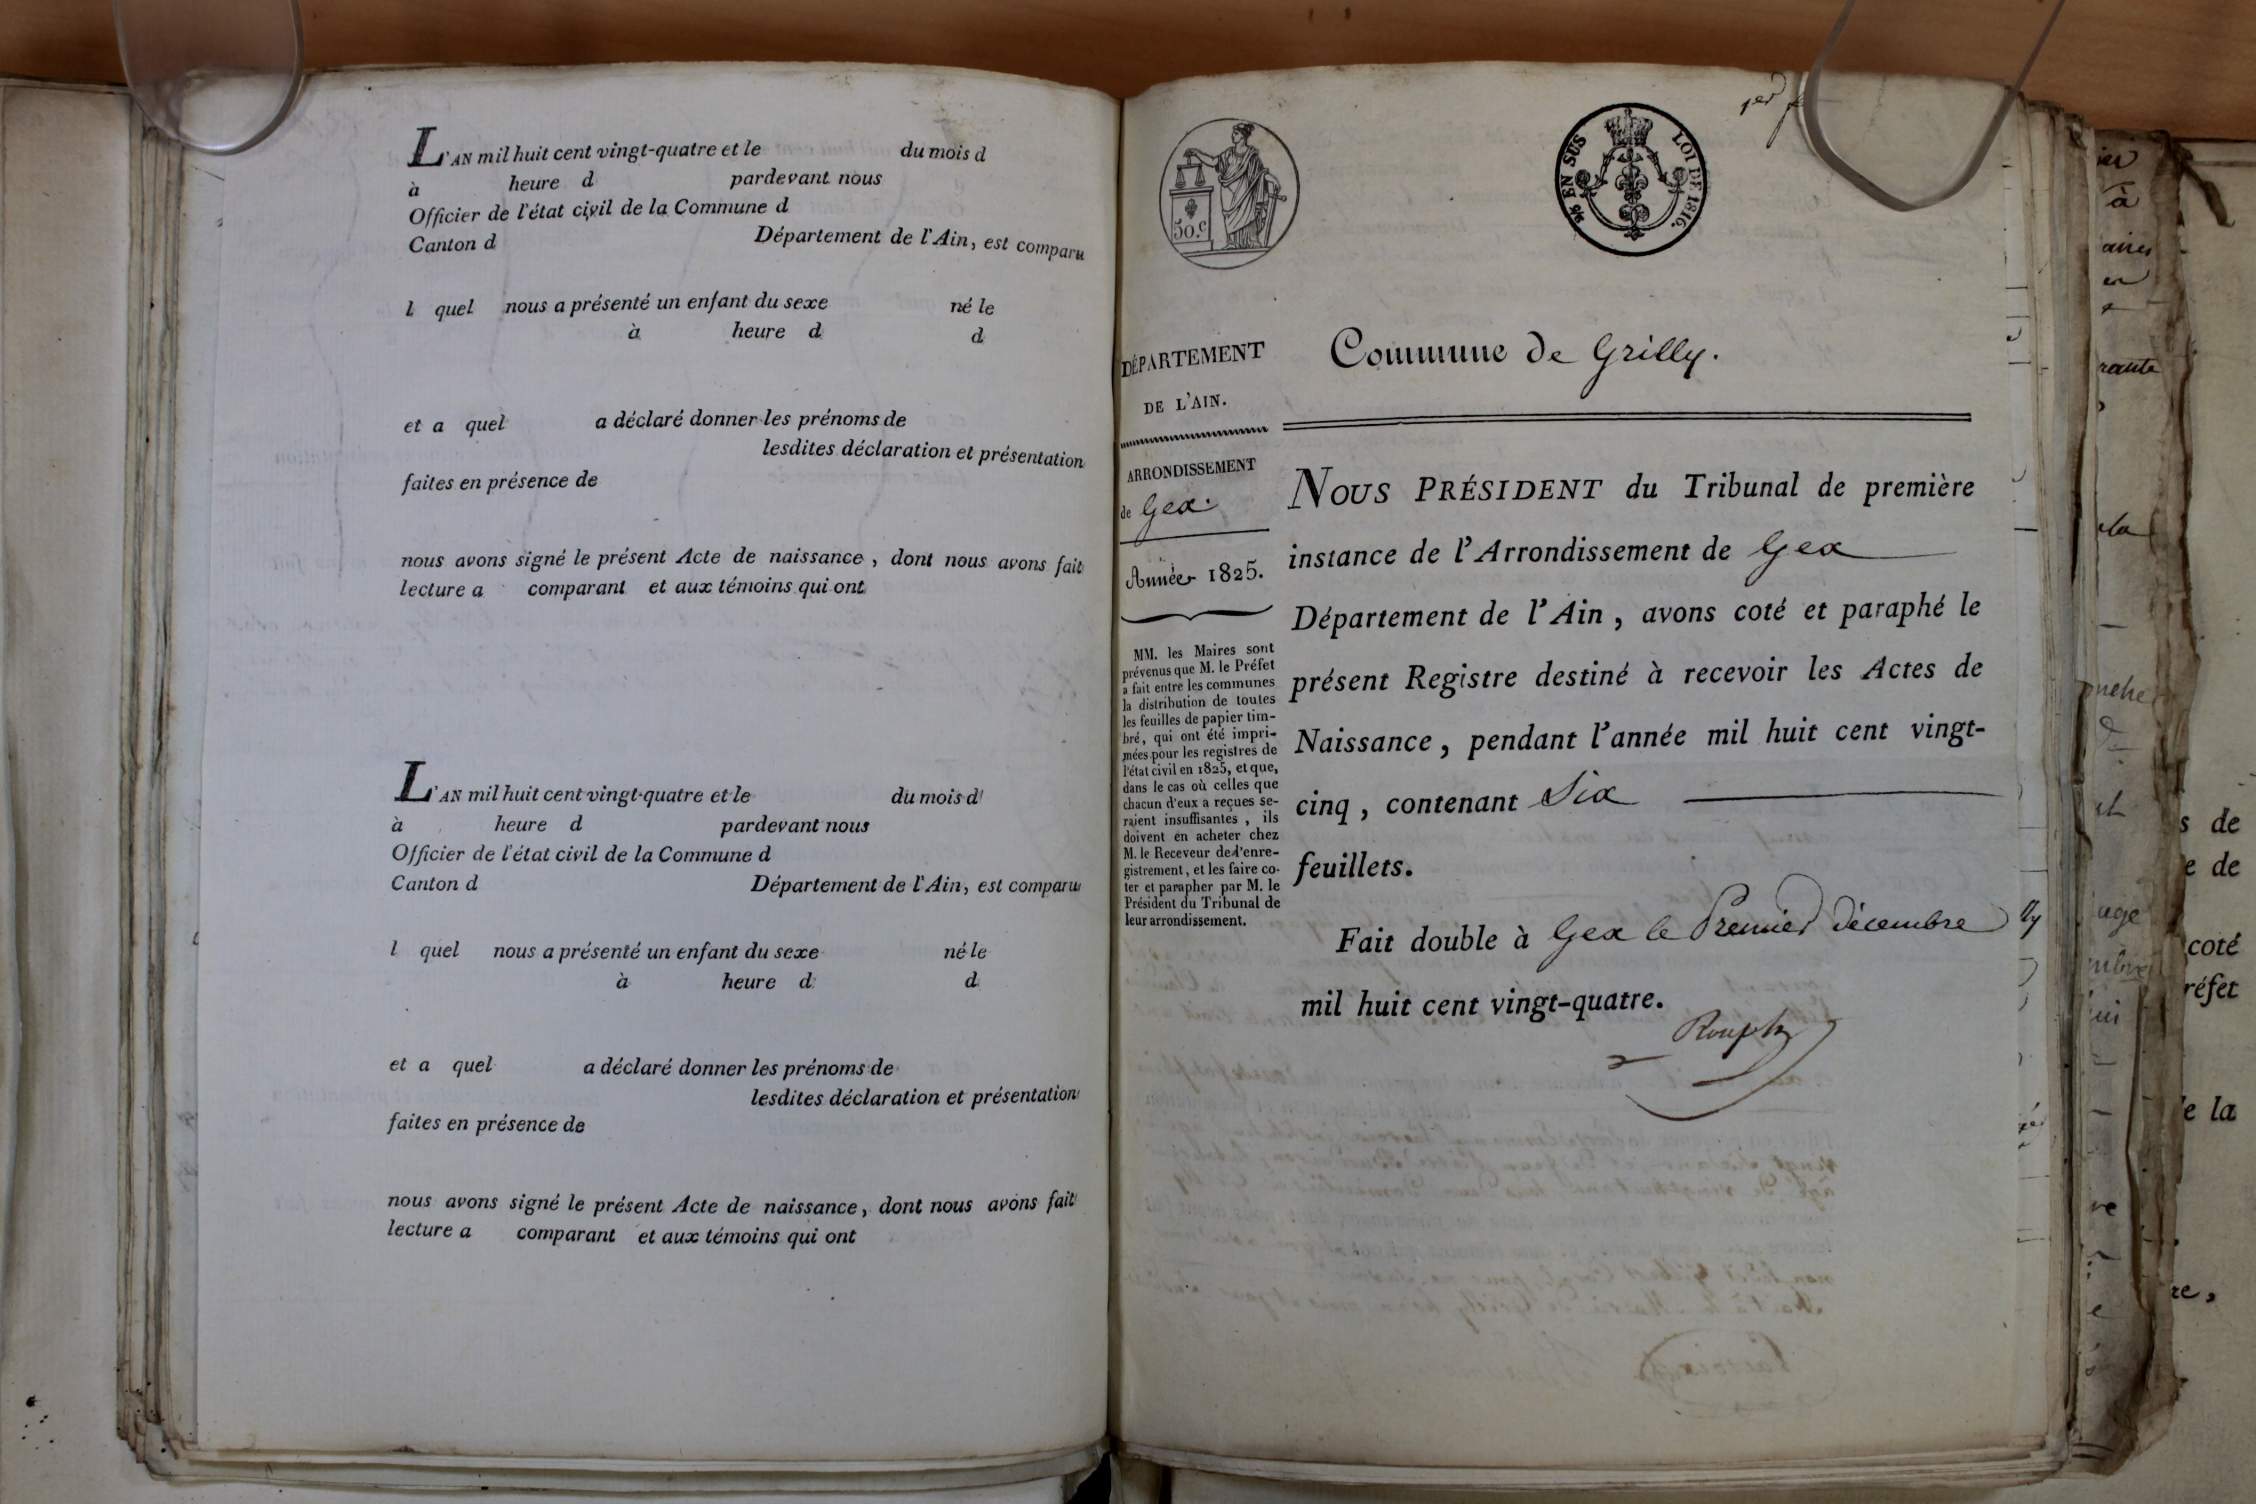 L'AN mil huit cent vingt-quatre et le du mois d
à heure d pardevant nous
Officier de l'état civil de la Commune d
Canton d Département de l'Ain, est comparu
l quel nous a présenté un enfant du sexe né le
à heure d d
et a quel a déclaré donner les prénoms de
lesdites déclaration et présentation
faites en présence de
nous avons signé le présent Acte de naissance, dont nous avons fait
lecture a comparant et aux témoins qui ont
L'AN mil huit cent vingt-quatre et le du mois d
à heure d pardevant nous
Officier de l'état civil de la Commune d
Canton d Département de l'Ain, est comparu
l quel nous a présenté un enfant du sexe né le
à heure d d
et a quel a déclaré donner les prénoms de
lesdites déclaration et présentation
faites en présence de
nous avons signé le présent Acte de naissance, dont nous avons fait
lecture a comparant et aux témoins qui ont
1er f
50.c
EN SUS LOI DE 1816.
DÉPARTEMENT
DE L'AIN.
ARRONDISSEMENT
de Gex.
Année 1825.
MM. les Maires sont
prévenus que M. le Préfet
a fait entre les communes
la distribution de toutes
les feuilles de papier tim-
bré, qui ont été impri-
mées pour les registres de
l'état civil en 1825, et que,
dans le cas où celles que
chacun d'eux a reçues se-
raient insuffisantes, ils
doivent en acheter chez
M. le Receveur de l'enre-
gistrement, et les faire co-
ter et parapher par M. le
Président du Tribunal de
leur arrondissement.
Commune de Grilly.
NOUS PRÉSIDENT du Tribunal de première
instance de l'Arrondissement de Gex
Département de l'Ain, avons coté et paraphé le
présent Registre destiné à recevoir les Actes de
Naissance, pendant l'année mil huit cent vingt-
cinq, contenant Six
feuillets.
Fait double à Gex le Premier décembre
mil huit cent vingt-quatre.
s de
e de
coté
réfet
e la
re,